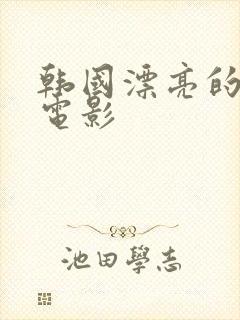 韩國漂亮的
電影
池田學志